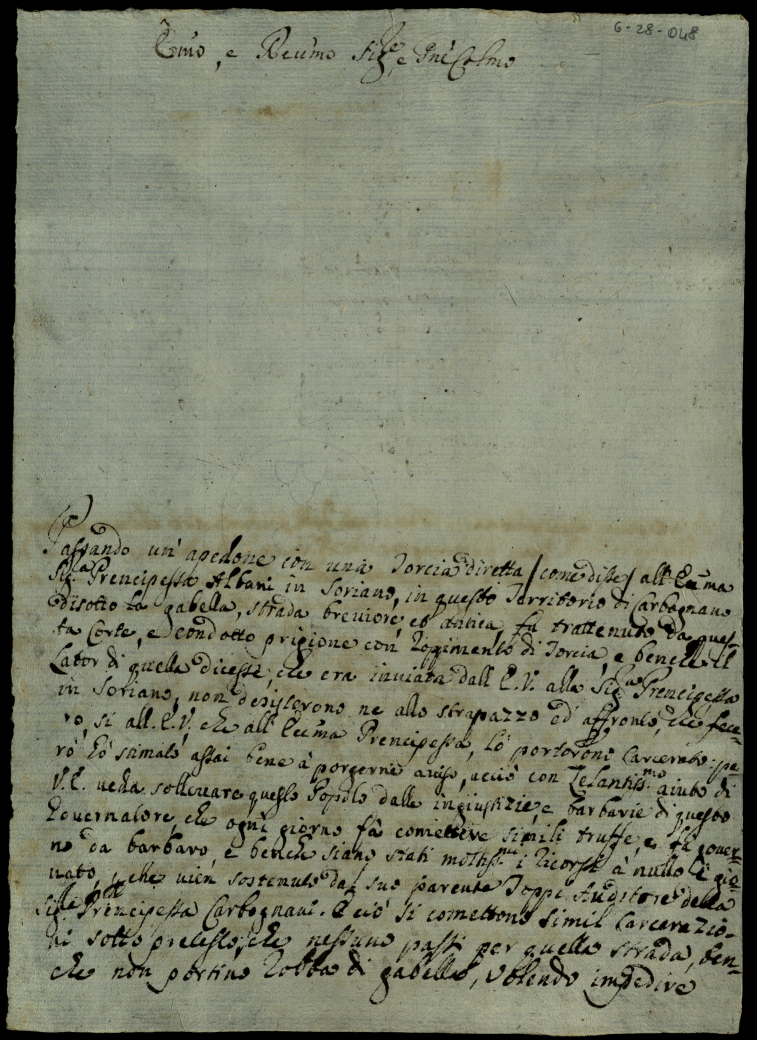 6-28-048
Emo, e Reumo Sig.re, e Pne Colmo
Passando un'apedone con una Torcia diretta / come disse / all'Ecc.ma
Sig.a Prencipessa Albani in Soriano, in questo Territorio di Carbognano
disotto la gabella, strada breviore, et antica, fù trattenuto da ques-
ta Corte, e condotto prigione con ropimento di Torcia, e benche il
Lator di quella dicesse, che era inviata dall'E.V. alla Sig.a Prencipessa
in Soriano, non desisterono ne allo strapazzo ed affronto, che fece-
ro, si all'E.V. che all'Ecc.ma Prencipessa, lò portorono Carcerato; pe-
rò hò stimato assai bene à porgerne aviso, acciò con Zelantiss.mo aiuto di
V.E. veda sollevare questo Popolo dalle ingiustizie, e barbarie di questo
Governatore, che ogni giorno fà comettere simili truffe, e fà gover-
no da barbaro, e benche siano stati moltiss.mi i Ricorsi à nullo è gio-
vato, che vien sostenuto dal suo parente Joppi Auditore della
Sig.a Prencipessa Carbognani. E ciò si comettono simil Carcerazio-
ni sotto pretesto, che nessuno passi per quella strada, ben-
che non portino robba di gabella, volendo impedire